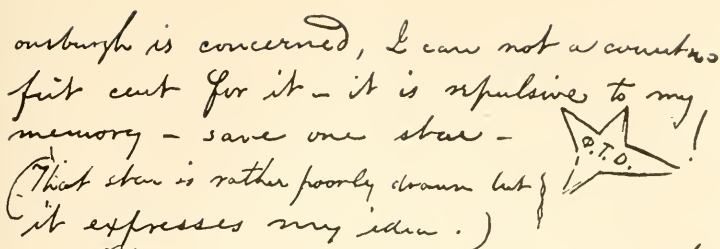 onsburgh is concerned, I care not a counter
feit cent for it – it is repulsive to my
memory – save one star – P.T.D. !
(That star is rather poorly drawn but
it expresses my idea.)